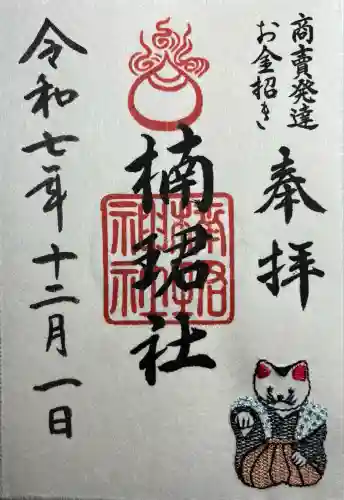 商賣発達
お金招き
奉拝
楠珺社
令和七年十二月一日